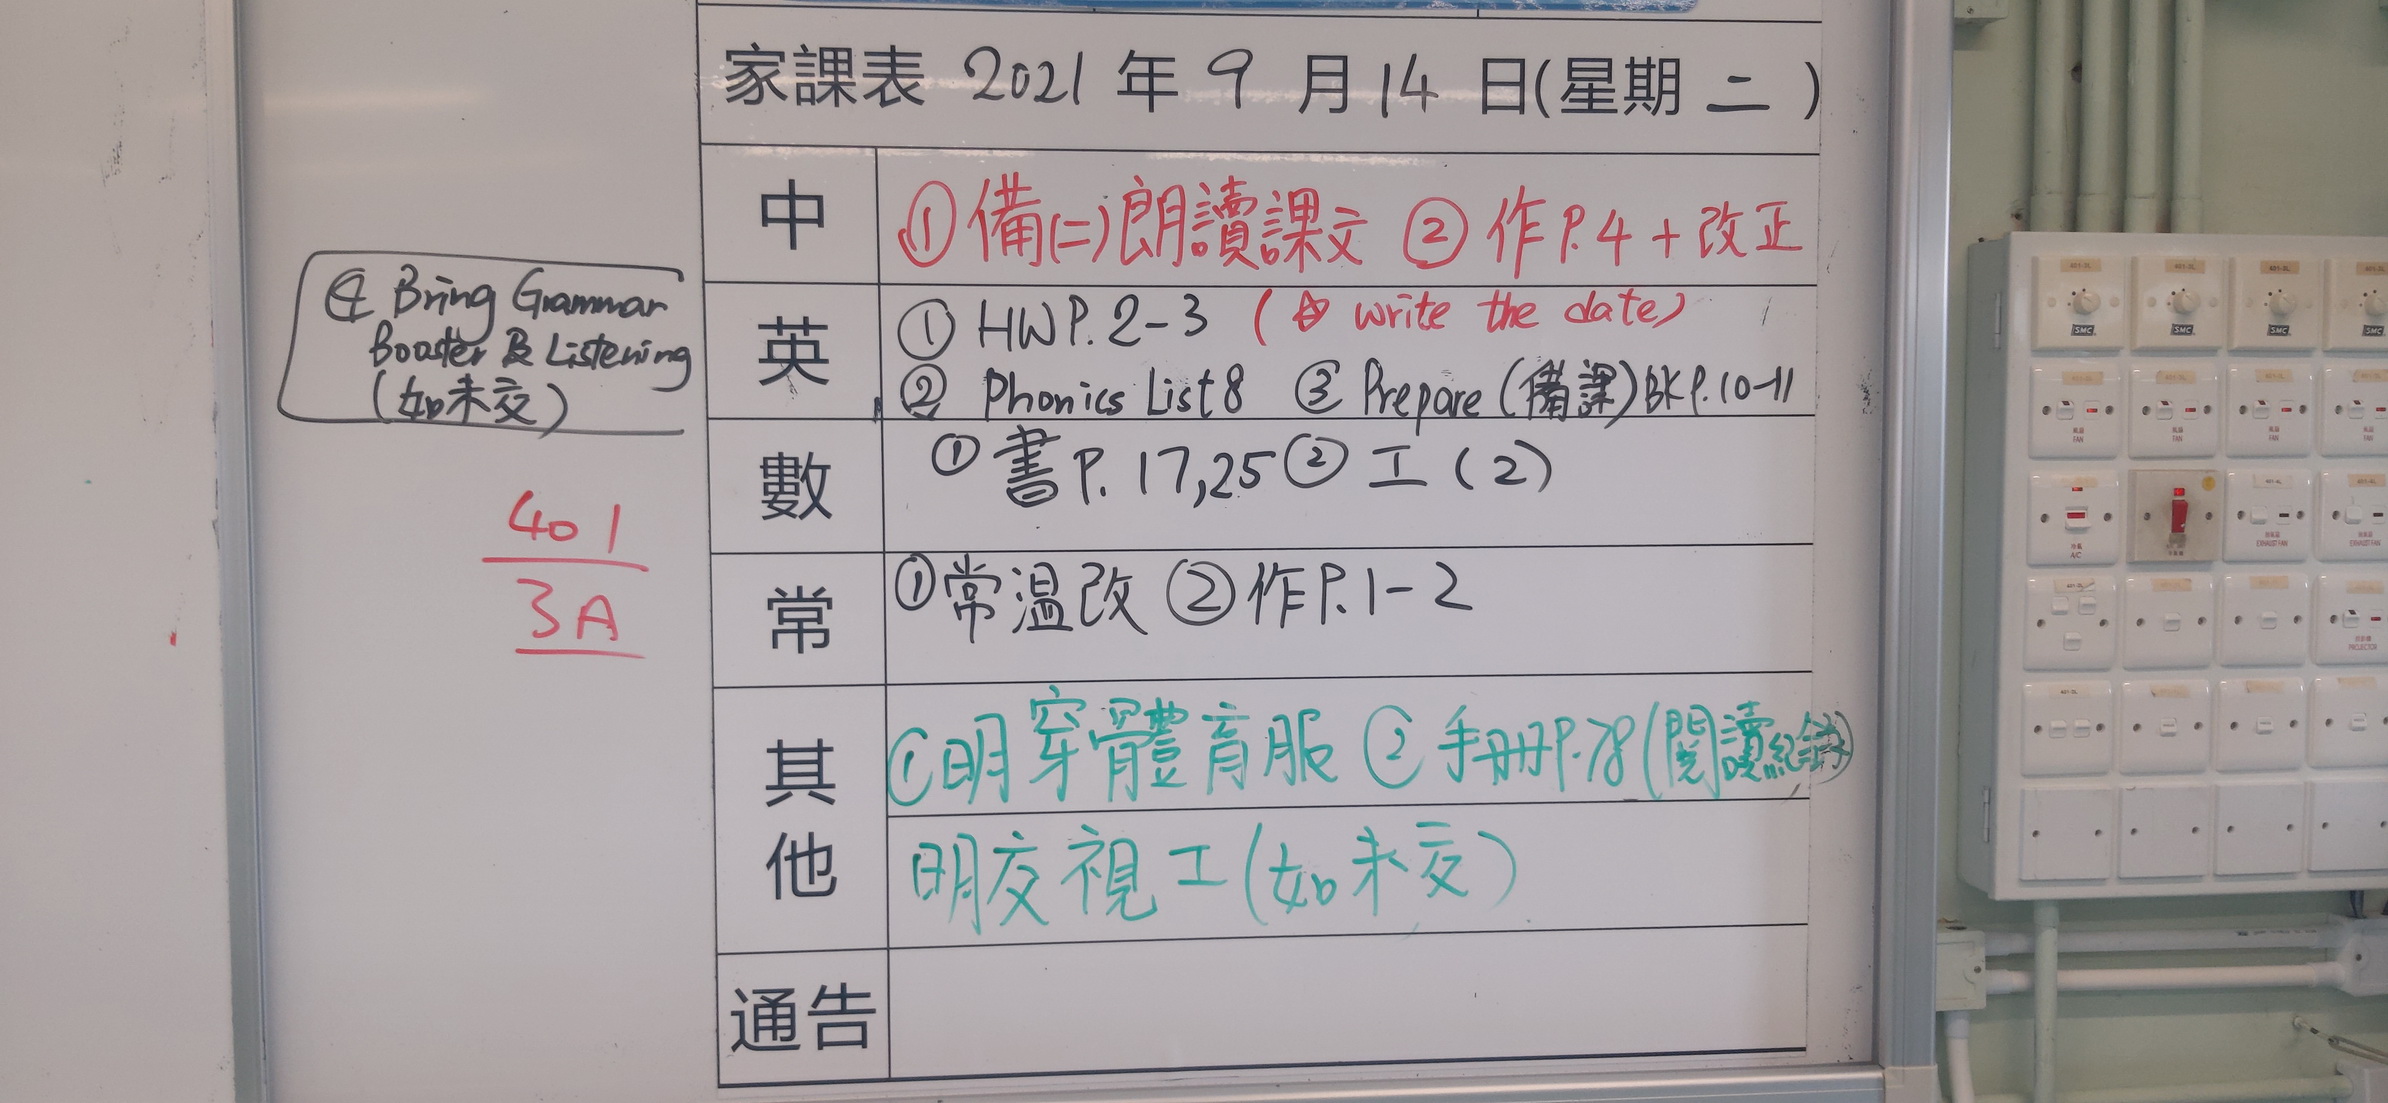 家課表 2021 年 9 月 14 日(星期 二 )
中
①備(二)朗讀課文 ②作P.4+改正
英
① HW P.2-3 (☆ write the date)
② Phonics List 8 ③ Prepare (備課) BK P.10-11
④ Bring Grammar
Booster & Listening
(如未交)
數
①書P.17,25 ②工(2)
401
3A
常
①常溫改 ②作P.1-2
其他
①明穿體育服 ②手冊P.78(閱讀紀錄)
明交視工(如未交)
通告
SMC
SMC
SMC
SMC
FAN
FAN
FAN
FAN
A/C
EXHAUST FAN
EXHAUST FAN
PROJECTOR